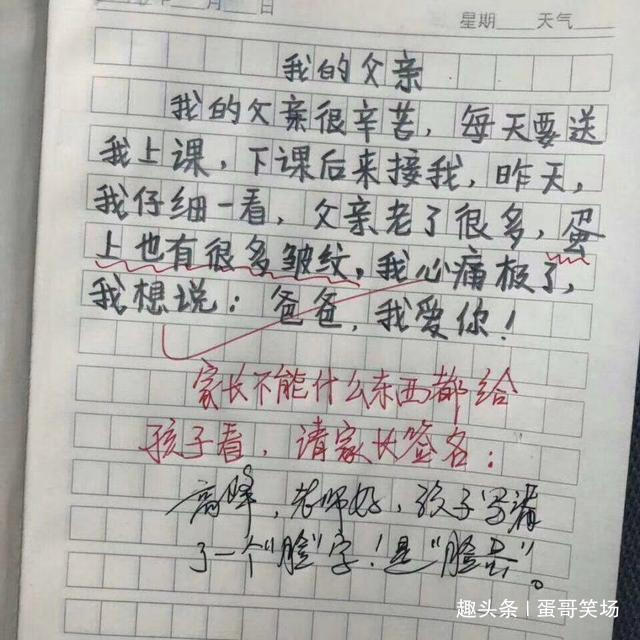 月 日
星期 天气
我的父亲
我的父亲很辛苦，每天要送
我上课，下课后来接我，昨天，
我仔细一看，父亲老了很多，蛋
上也有很多皱纹，我心痛极了，
我想说：爸爸，我爱你！
家长不能什么东西都给
孩子看，请家长签名：
高峰，老师好，孩子写漏
了一个“脸”字！是“脸蛋”。
趣头条 | 蛋哥笑场